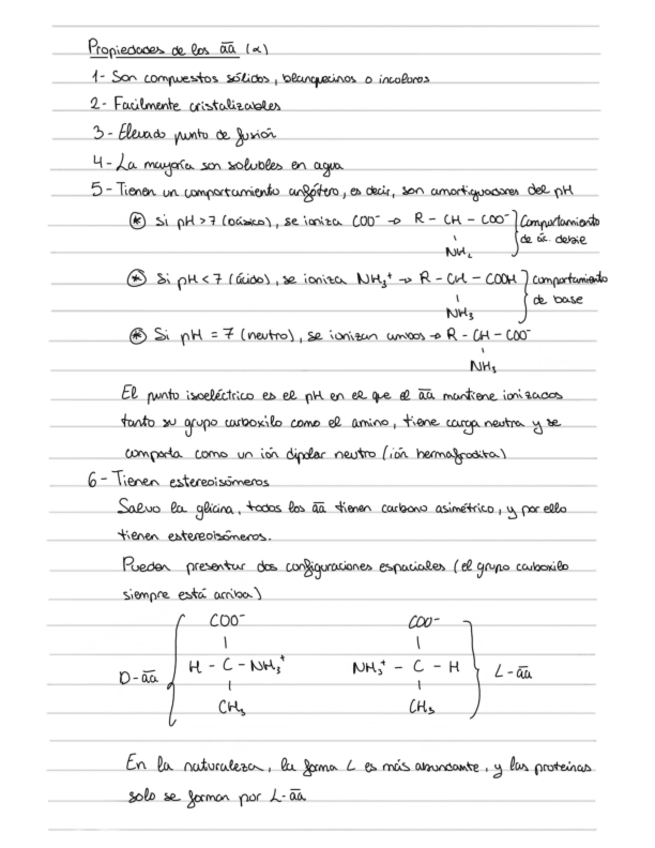 Propiedades de los āā (α)
1- Son compuestos sólidos, blanquecinos o incoloros
2- Facilmente cristalizables
3- Elevado punto de fusión
4- La mayoría son solubles en agua
5- Tienen un comportamiento anfótero, es decir, son amortiguadores del pH
* Si pH > 7 (básico), se ioniza COO⁻ → R - CH - COO⁻ ] Comportamiento
de ác. debil
NH₂
* Si pH < 7 (ácido), se ioniza NH₃⁺ → R - CH - COOH ] comportamiento
de base
NH₃
* Si pH = 7 (neutro), se ionizan ambos → R - CH - COO⁻
NH₃
El punto isoeléctrico es el pH en el que el āā mantiene ionizados
tanto su grupo carboxilo como el amino, tiene carga neutra y se
comporta como un ión dipolar neutro (ión hermafrodita)
6- Tienen estereoisómeros
Salvo la glicina, todos los āā tienen carbono asimétrico, y por ello
tienen estereoisómeros.
Pueden presentar dos configuraciones espaciales (el grupo carboxilo
siempre está arriba)
COO⁻ COO⁻
D-āā H - C - NH₃⁺ NH₃⁺ - C - H L-āā
CH₃ CH₃
En la naturaleza, la forma L es más abundante, y las proteínas
solo se forman por L-āā